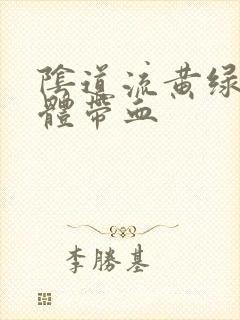 陰道流黄绿
體帶血
李勝基